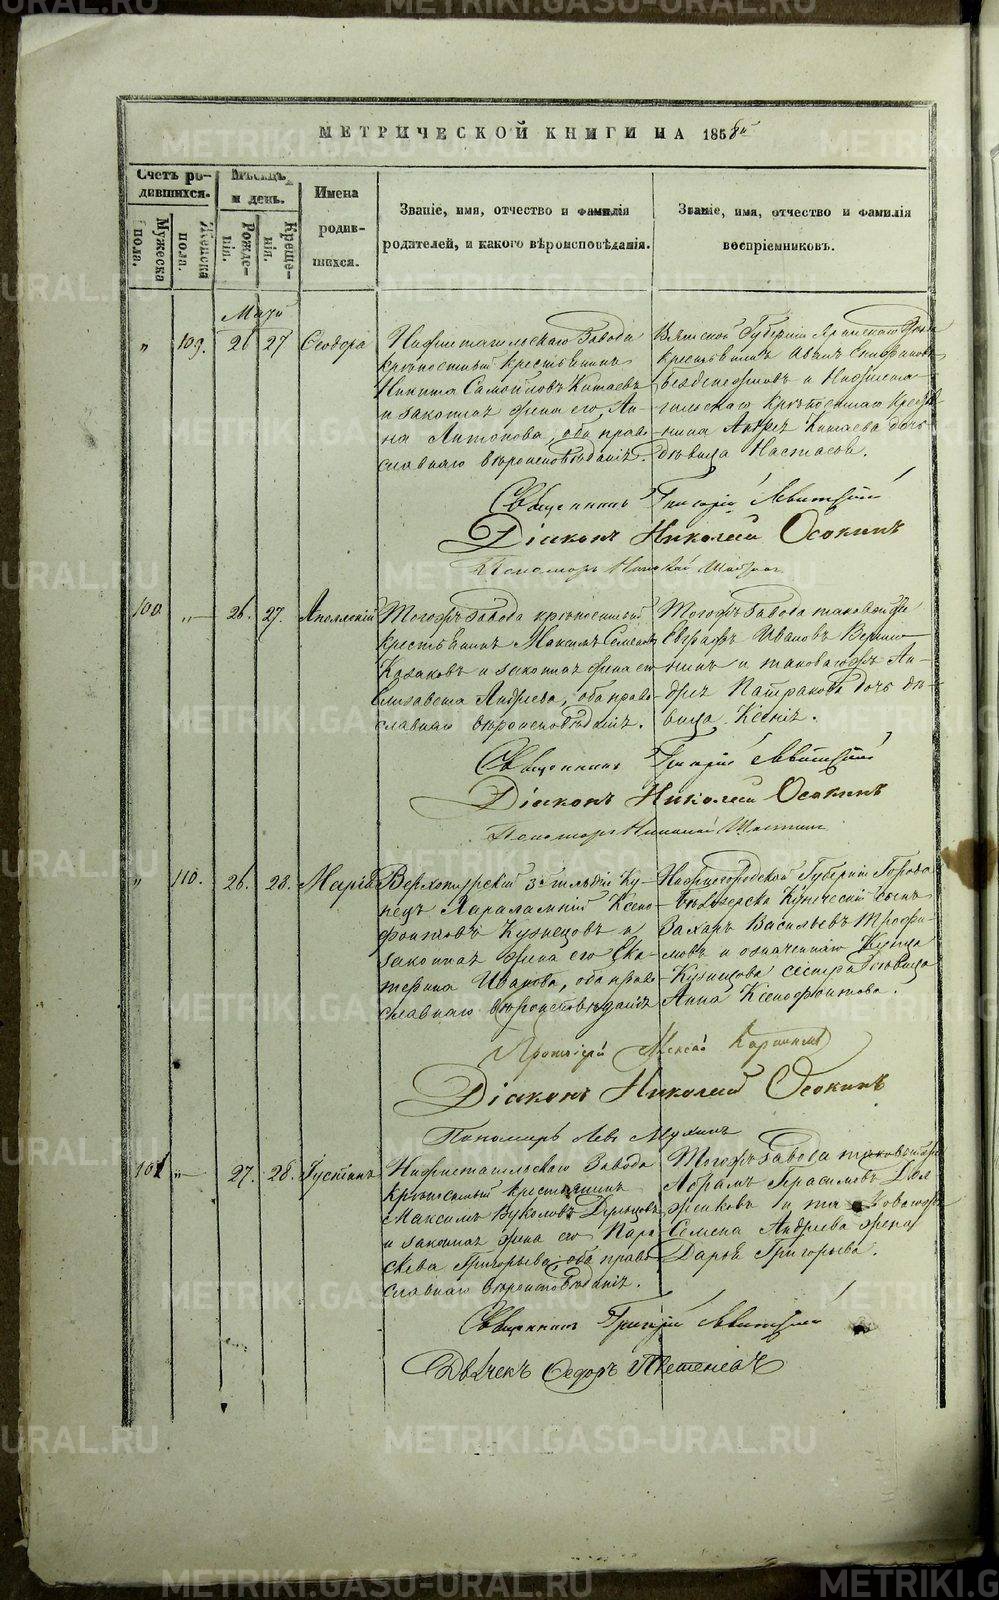 METRIKI.GASO-URAL.RU
МЕТРИЧЕСКОЙ КНИГИ НА 1858й
Счетъ ро-
дившихся.
Мужеска
пола.
Женска
пола.
Мѣсяцъ
и день.
Рожде-
нія.
Креще-
нія.
Имена
родив-
шихся.
Званіе, имя, отчество и фамилія
родителей, и какого вѣроисповѣданія.
Званіе, имя, отчество и фамилія
воспріемниковъ.
Май
„ 109. 26 27 Ѳеодора
Нижнетагильскаго Завода
крѣпостный крестьянинъ
Никита Самойловъ Китаевъ
и законная жена его Ан-
на Антонова, оба право-
славнаго вѣроисповѣданія.
Вятской Губерніи Яранскаго
крестьянинъ
и Нижнета-
гильскаго крѣпостнаго кресть-
нина Андрея Китаева дочь
дѣвица Настасья.
Священникъ Григорій Левитскій
Діаконъ Николай Осокинъ
Пономарь Николай
100. „ 26. 27.
Тогожъ Завода крѣпостный
крестьянинъ Максимъ Семеновъ
Казаковъ и законная жена его
Елизавета Андреева, оба право-
славнаго вѣроисповѣданія.
Тогожъ Завода таковой же
Евграфъ Ивановъ Верши-
нинъ и таковагожъ Ан-
дрея Патракова дочь дѣ-
вица Ксенія.
Священникъ Григорій Левитскій
Діаконъ Николай Осокинъ
Пономарь Николай
„ 110. 26. 28. Марія
Верхотурскій 3й гильдіи Ку-
пецъ Харалампій Ксено-
фонтовъ Кузнецовъ и
законная жена его Ека-
терина Иванова, оба право-
славнаго вѣроисповѣданія
Нижегородской Губерніи Города
Купеческій сынъ
Захаръ Васильевъ Трофи-
мовъ и означеннаго Купца
Кузнецова сестра Дѣвица
Анна Ксенофонтова.
Протоіерей
Діаконъ Николай Осокинъ
Пономарь Левъ Мухинъ
101. „ 27. 28. Іустинъ
Нижнетагильскаго Завода
крѣпостный крестьянинъ
Максимъ Вуколовъ
и законная жена его Парас-
кева Григорьева, оба право-
славнаго вѣроисповѣданія.
Тогожъ Завода таковой же
Абрамъ Герасимовъ
и таковогожъ
Семена Андреева жена
Дарья Григорьева.
Священникъ Григорій Левитскій
Дьячекъ Ѳедоръ